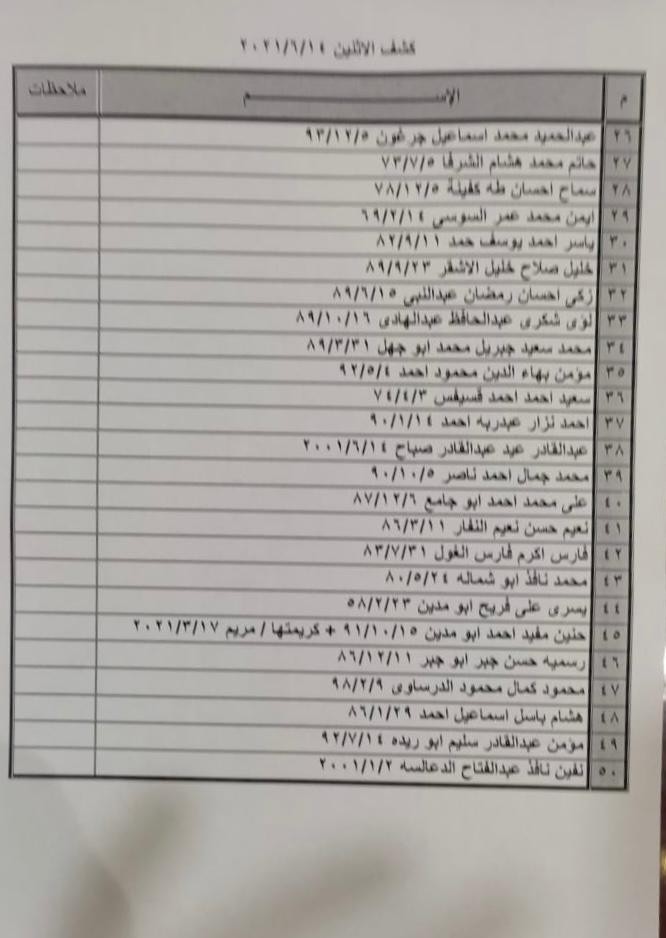 كشف الاثنين ٢٠٢١/٦/١٤
م الإســـــــــم ملاحظات
٢٦ عبدالحميد محمد اسماعيل جرغون ٩٣/١٢/٥
٢٧ حاتم محمد هشام الشرفا ٧٣/٧/٥
٢٨ سماح احسان طه كفينة ٧٨/١٢/٥
٢٩ ايمن محمد عمر السوسى ٦٩/٢/١٤
٣٠ ياسر احمد يوسف حمد ٨٢/٩/١١
٣١ خليل صلاح خليل الاشقر ٨٩/٩/٢٣
٣٢ زكى احسان رمضان عبدالنبى ٨٩/٦/١٥
٣٣ لؤى شكرى عبدالحافظ عبدالهادى ٨٩/١٠/١٦
٣٤ محمد سعيد جبريل محمد ابو جهل ٨٩/٣/٣١
٣٥ مؤمن بهاء الدين محمود احمد ٩٢/٥/٤
٣٦ سعيد احمد احمد قسيفس ٧٤/٤/٣
٣٧ احمد نزار عبدربه احمد ٩٠/١/١٤
٣٨ عبدالقادر عيد عبدالقادر صباح ٢٠٠١/٦/١٤
٣٩ محمد جمال احمد ناصر ٩٠/١٠/٥
٤٠ على محمد احمد ابو جامع ٨٧/١٢/٦
٤١ نعيم حسن نعيم النفار ٨٦/٣/١١
٤٢ فارس اكرم فارس الغول ٨٣/٧/٣١
٤٣ محمد نافذ ابو شماله ٨٠/٥/٢٤
٤٤ يسرى على فريح ابو مدين ٥٨/٢/٢٣
٤٥ حنين مفيد احمد ابو مدين ٩١/١٠/١٥ + كريمتها / مريم ٢٠٢١/٣/١٧
٤٦ رسميه حسن جبر ابو جبر ٨٦/١٢/١١
٤٧ محمود كمال محمود الدرساوى ٩٨/٢/٩
٤٨ هشام باسل اسماعيل احمد ٨٦/١/٢٩
٤٩ مؤمن عبدالقادر سليم ابو ريده ٩٢/٧/١٤
٥٠ نفين نافذ عبدالفتاح الدعالسه ٢٠٠١/١/٢